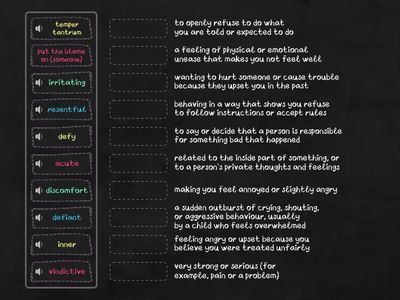 temper
tantrum
put the blame
on (someone)
irritating
resentful
defy
acute
discomfort
defiant
inner
vindictive
to openly refuse to do what
you are told or expected to do
a feeling of physical or emotional
unease that makes you not feel well
wanting to hurt someone or cause trouble
because they upset you in the past
behaving in a way that shows you refuse
to follow instructions or accept rules
to say or decide that a person is responsible
for something bad that happened
related to the inside part of something, or
to a person's private thoughts and feelings
making you feel annoyed or slightly angry
a sudden outburst of crying, shouting,
or aggressive behaviour, usually
by a child who feels overwhelmed
feeling angry or upset because you
believe you were treated unfairly
very strong or serious (for
example, pain or a problem)